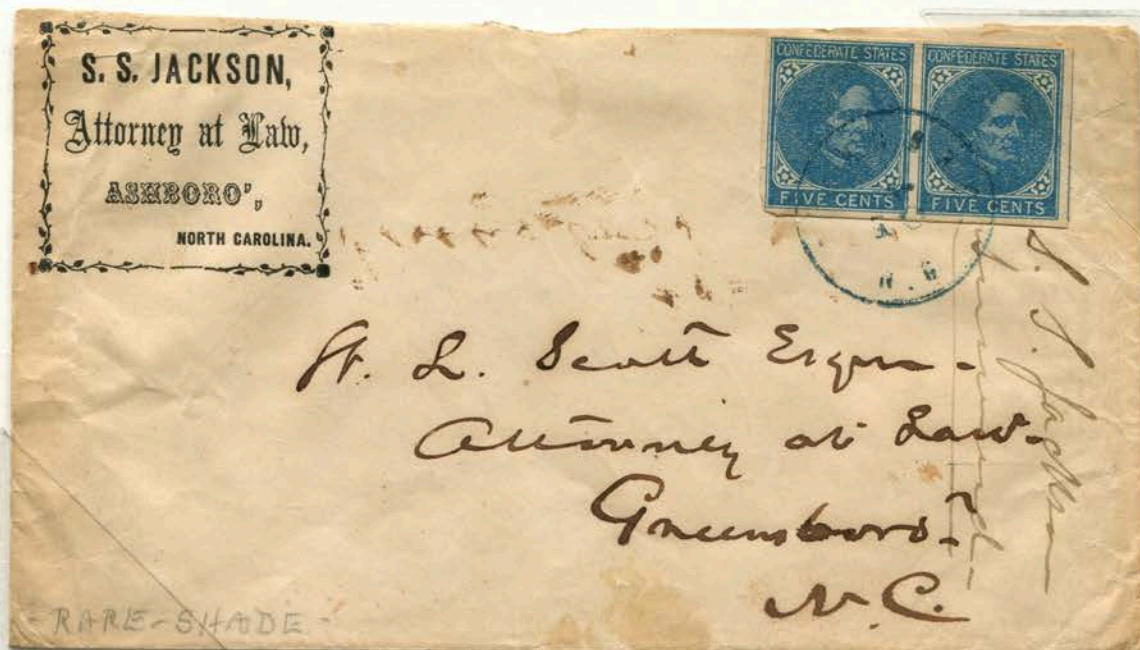 S. S. JACKSON,
Attorney at Law,
ASHBORO',
NORTH CAROLINA.
CONFEDERATE STATES
FIVE CENTS
CONFEDERATE STATES
FIVE CENTS
N.C
L. Scott Esqr.
Attorney at Law.
Greensboro.
N. C.
S. S. Jackson
RARE-SHADE